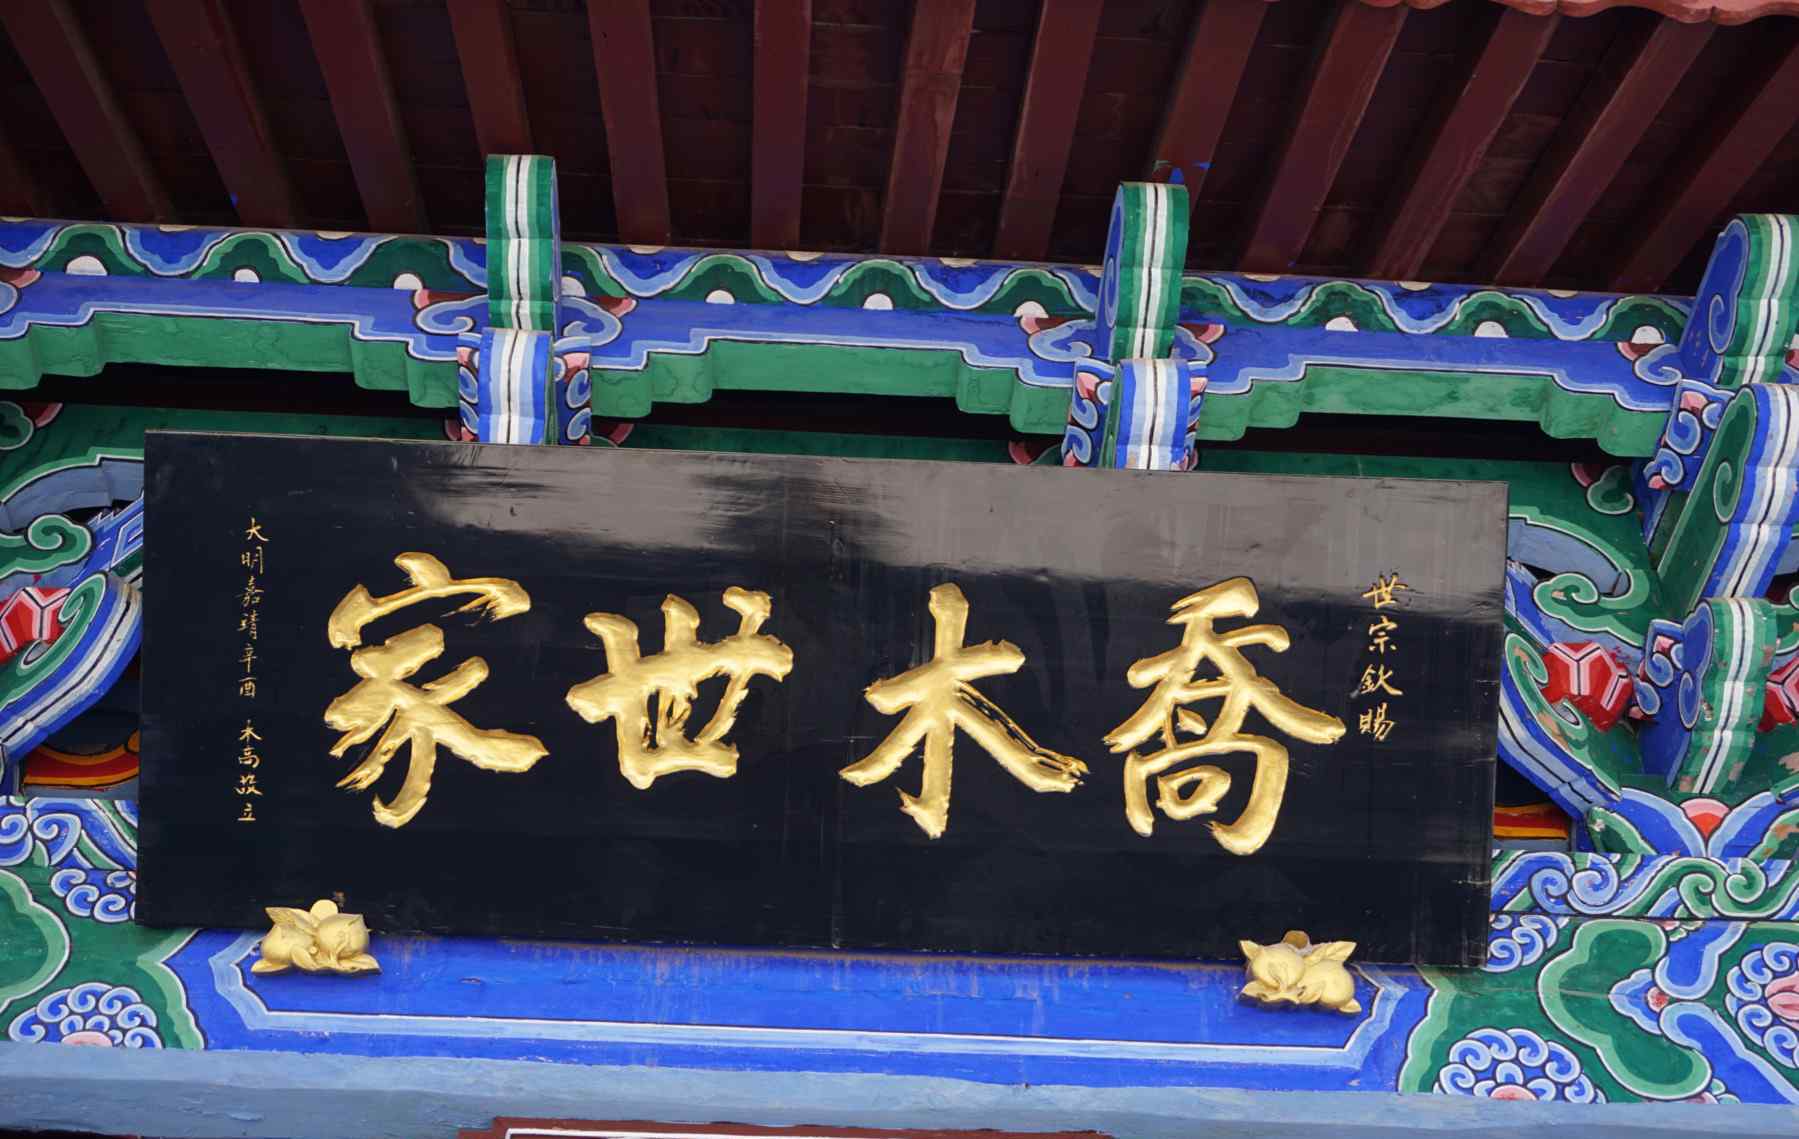 世宗欽賜
喬木世家
大明嘉靖辛酉 木高設立